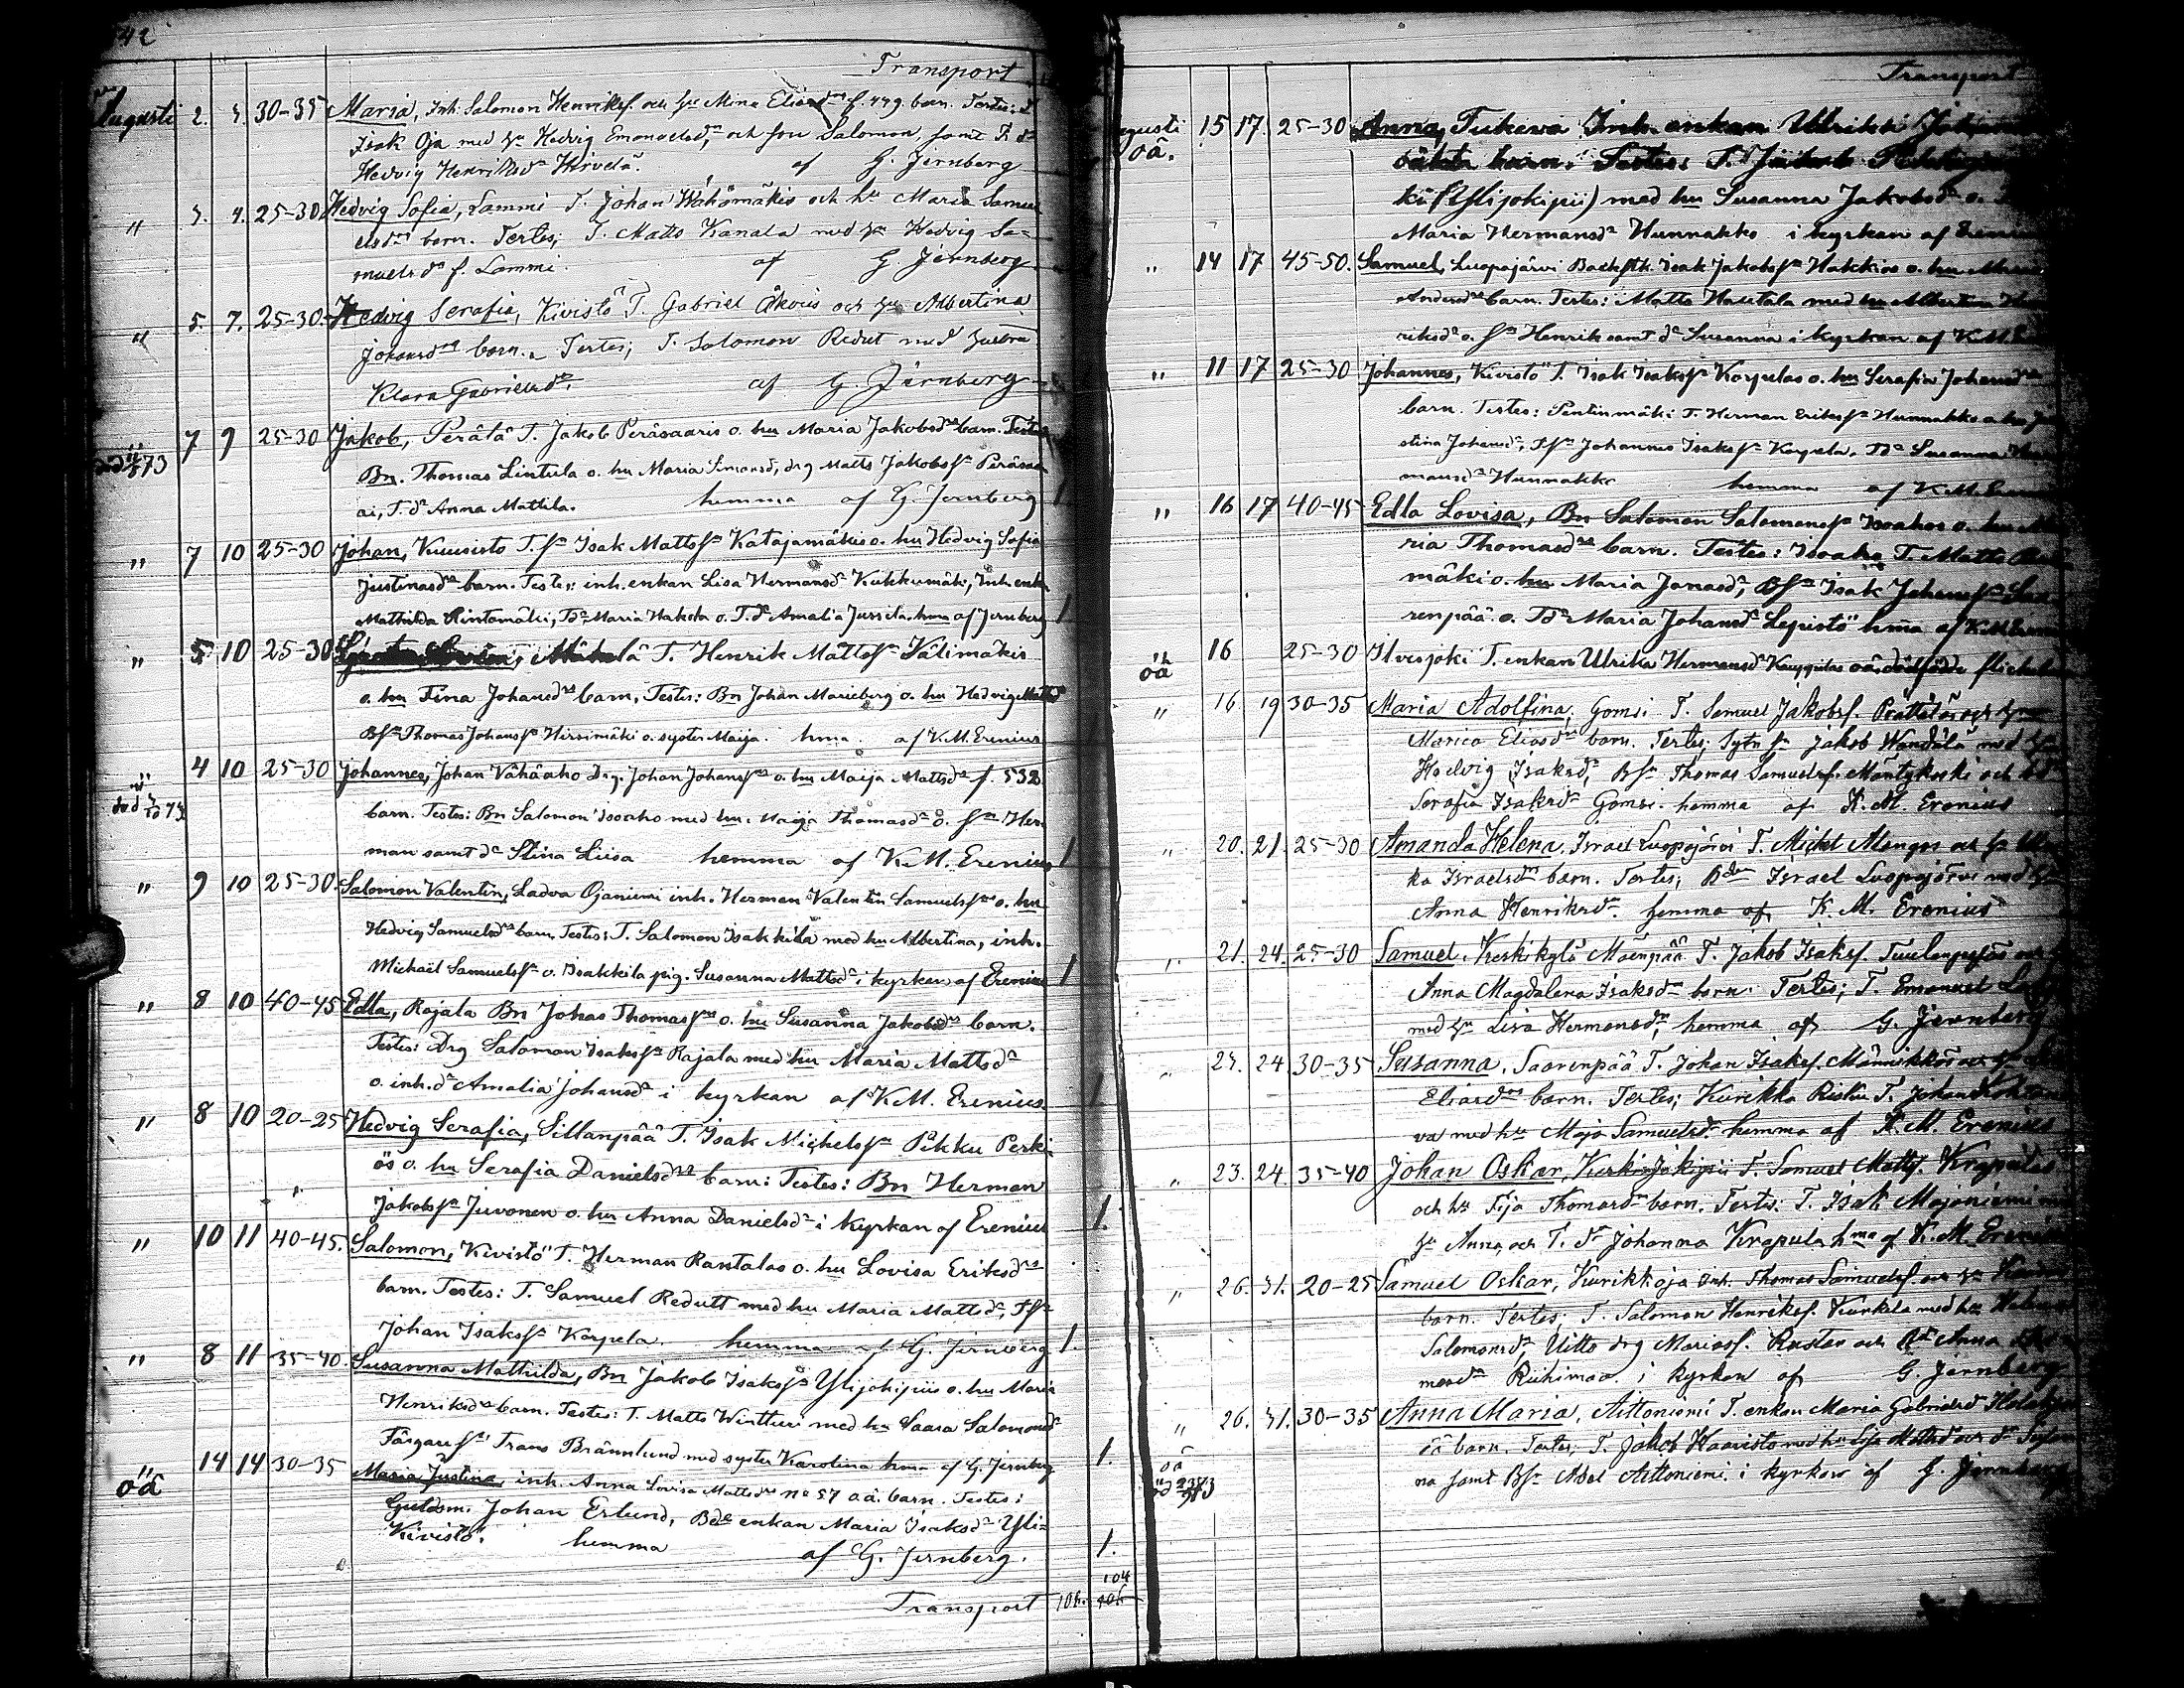 42
Transport
Augusti 2. 3. 30-35 Maria, Inh. Salomon Henrikss. och hu Mina Eliasdrs f. 449. barn. Testes: T.
Isak Oja med hu Hedvig Emanuelsdr och son Salomon, samt
Hedvig Henriksdr Hirvelä. af G. Jernberg
" 3. 4. 25-30 Hedvig Sofia, Lammi T. Johan Wähämäkis och hu Maria Samu
elsdrs barn. Testes; T. Matts Kanala med hu Hedvig Sa-
muelsdr f. Lammi. af G. Jernberg
" 5. 7. 25-30. Hedvig Serafia, Kivistö T. Gabriel och hu Albertina
Johansdrs barn. Testes; T. Salomon Redut med hustru
Klara Gabrielsdr. af G. Jernberg
" död 73 7 9 25-30 Jakob, Perälä T. Jakob Peräsaaris o. hu Maria Jakobsdrs barn. Testes
Bn. Thomas Lintula o. hu Maria Simonsd, drg Matts Jakobssn Peräsaa
ri, T.dr Anna Mattila. hemma af G. Jernberg 1
" 7 10 25-30 Johan, Kuusisto T. sn Isak Mattssn Katajamäkis o. hu Hedvig Sofia
Justinasdrs barn. Testes: inh. enkan Lisa Hermansdr Kukkumäki, Inh. enka
Mathilda Hintamäki, Bdr Maria Hakola o. T.dr Amalia Jussila. hma af Jernberg 1
" 5 10 25-30 T. Henrik Mattssn Välimäkis
o. hu Fina Johansdrs barn, Testes: Bn Johan Marieberg o. hu Hedvig Mattsdr
Bsn Thomas Johanssn Hirsimäki o. syster Maija. hma. af K. M. Erenius
" död 73 4 10 25-30 Johannes, Johan Vähäaho Drg. Johan Johanssns o. hu Maija Mattsdrs f. 532
barn. Testes: Bn Salomon Isoaho med hu. Maija Thomasdr o. sn Her
man samt dr Stina Liisa hemma af K. M. Erenius 1
" 9 10 25-30. Salomon Valentin, Ladva Ojaniemi inh. Herman Valentin Samuelssns o. hu
Hedvig Samuelsdrs barn. Testes: T. Salomon Isakkila med hu Albertina, inh.
Michaël Samuelssn o. Isakkila pig. Susanna Mattsdr i kyrkan af Erenius 1
" 8 10 40-45 Edla, Rajala Bn Johan Thomassns o. hu Susanna Jakobsdrs barn.
Testes: Drg Salomon Isakssn Rajala med hu Maria Mattsdr
o. inh.dr Amalia Johansdr i kyrkan af K.M. Erenius. 1
" 8 10 20-25 Hedvig Serafia, Sillanpää T. Isak Michelssn Pikku Perki
ös o. hu Serafia Danielsdrs barn: Testes: Bn Herman
Jakobssn Juvonen o. hu Anna Danielsdr i kyrkan af Erenius 1.
" 10 11 40-45. Salomon, Kivistö T. Herman Rantalas o. hu Lovisa Eriksdrs
barn. Testes: T. Samuel Redutt med hu Maria Mattsdr, Tsn
Johan Isakssn Korpela. hemma af G. Jernberg 1.
" 8 11 35-40. Susanna Mathilda, Bn Jakob Isakssn Ylijokipiis o. hu Maria
Henriksdrs barn. Testes: T. Matts Wintturi med hu Saara Salomonsdr
Färgaresn Frans Brännlund med syster Karolina hma af G. Jernberg 1.
" oä 14 14 30-35 Maria Justina, inh. Anna Lovisa Mattsdrs No 57 oä. barn. Testes:
Guldsm. Johan Erlund, Bde enkan Maria Isaksdr Yli-
Kivistö. hemma af G. Jernberg. 1.
104
Transport 106. 106
Transport
Augusti oä. 15 17. 25-30 Anna, Tukeva Inh. enkan Ulrika
oäkta barn. Testes: T. Jakob
ki (Ylijokipii) med hu Susanna Jakobsdr o.
Maria Hermansdr Hunnakko i kyrkan af Erenius
" 14 17 45-50. Samuel, Luopajärvi Backstk. Isak Jakobssn Hakkios o. hu
Andersdrs barn. Testes: Matts Hautala med hu Albertina Hen
riksdr o. sn Henrik samt dr Susanna i kyrkan af K.M.
" 11 17 25-30 Johannes, Kivistö T. Isak Isakssn Korpelas o. hu Serafia Johansdrs
barn. Testes: Pentinmäki T. Herman Erikssn Hunnakko o. hu Ju
stina Johansdr, Tsn Johannes Isakssn Korpela, Tdr Susanna Her
mansdr Hunnakko hemma af K.M.
" 16 17 40-45 Edla Lovisa, Bn Salomon Salomonssn Isoahos o. hu Ma
ria Thomasdrs barn. Testes: Isoaho T. Matts
mäki o. hu Maria Jonasdr, Bsn Isak Johanssn Saa
renpää o. Bdr Maria Johansdr Lepistö hma af K.M.
" oä 16 25-30 Ilvesjoki T. enkan Ulrika Hermansdr oä. dödfödde
" 16. 19 30-35 Maria Adolfina, Gomsi T. Samuel Jakobs. och hu
Maria Eliasdrs barn. Testes; Sytn sn Jakob med hu
Hedvig Isaksdr, Bsn Thomas Samuelss. Mäntykoski och
Serafia Isaksdr Gomsi. hemma af K. M. Erenius
" 20. 21. 25-30 Amanda Helena, Israel Luopajärvi T. Michel och hu Ulri
ka Israelsdrs barn. Testes; Israel Luopajärvi med hu
Anna Henriksdr. hemma af K. M. Erenius
" 21. 24. 25-30 Samuel, Keskikylä Mäenpää T. Jakob Isakss.
Anna Magdalena Isaksdrs barn. Testes; T. Emanuel
med hu Lisa Hermansdr, hemma af G. Jernberg
" 23. 24. 30-35 Susanna, Saarenpää T. Johan Isakss.
Eliasdrs barn. Testes; Kurikka Risku T. Johan
va med hu Maja Samuelsdr. hemma af K. M. Erenius
" 23. 24. 35-40 Johan Oskar, Kurki-Jokipii T. Samuel Matts. Krapulas
och hu Fija Thomasdrs barn. Testes: T. Isak Majaniemi
hu Anna och T. dr Johanna Krapula hma af K. M. Erenius
" 26. 31. 20-25 Samuel Oskar, Kurikkoja Inh. Thomas Samuelss. och hu
barn. Testes; T. Salomon Henrikss. Kurkela med hu
Salomonsdr, Uitto drg Mariass. och Anna
masdr Riihimaa. i kyrkan af G. Jernberg
" oä död 73 26. 31. 30-35 Anna Maria, Aittoniemi T. enkan Maria Gabrielsd
oä barn. Testes; T. Jakob Haavisto med hu Lisa Mattsdr och dr
na samt Bsn Abel Aittoniemi. i kyrkan af G. Jernberg